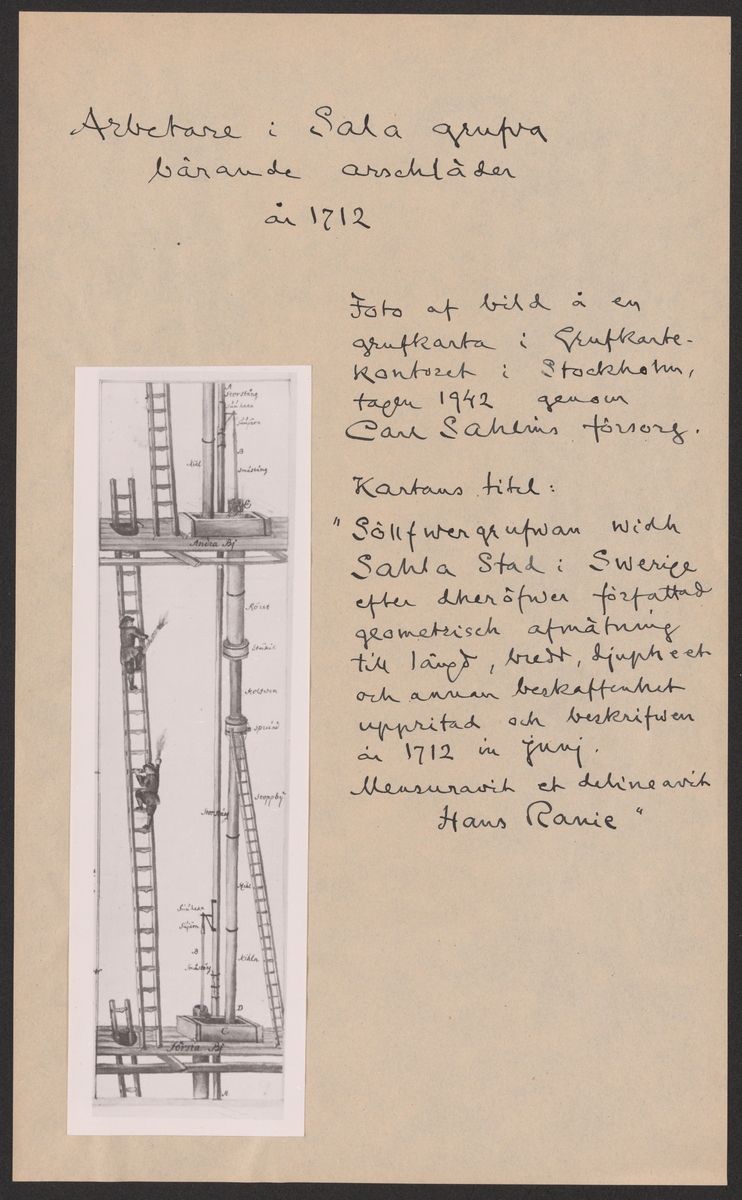 Arbetare i Sala grufva
bärande arschläder
år 1712
Foto af bild å en
grufkarta i Grufkarte-
kontoret i Stockholm,
tagen 1942 genom
Carl Sahlins försorg.
Kartans titel:
"Söllfwergrufwan widh
Sahla Stad i Swerige
efter dheröfwer författad
geometrisch afmätning
till längd, bredd, djupheet
och annan beskaffenhet
uppritad och beskrifwen
år 1712 in Junj.
Mensuravit et delineavit
Hans Ranie"
A
Storstång
B
Småstång
E
Andra Bj
Röret
Storstång
B
Småstång
D
C
Första Bj
A